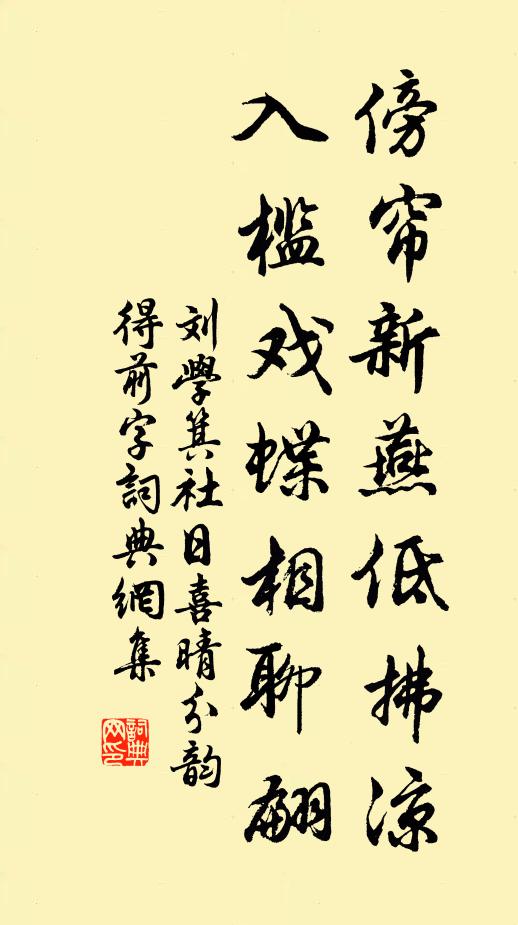 傍帘新燕低拂凉
入槛戏蝶相聊翩
刘學箕社日喜晴分韵
得前字詞典網集
詞典
网印